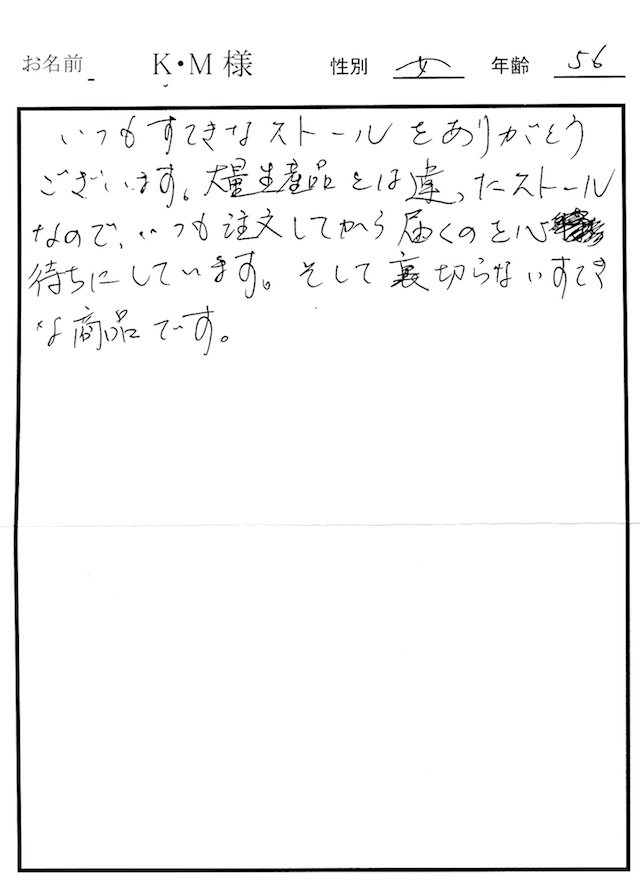 お名前 K・M様 性別 女 年齢 56
いつもすてきなストールをありがとう
ございます。大量生産品とは違ったストール
なので、いつも注文してから届くのを心
待ちにしています。そして裏切らないすてき
な商品です。